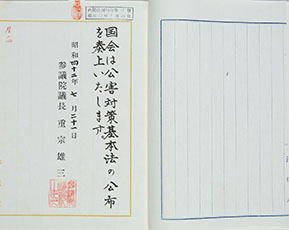 国会は公害対策基本法の公布
を奏上いたします。
昭和四十二年七月二十一日
参議院議長 重宗雄三